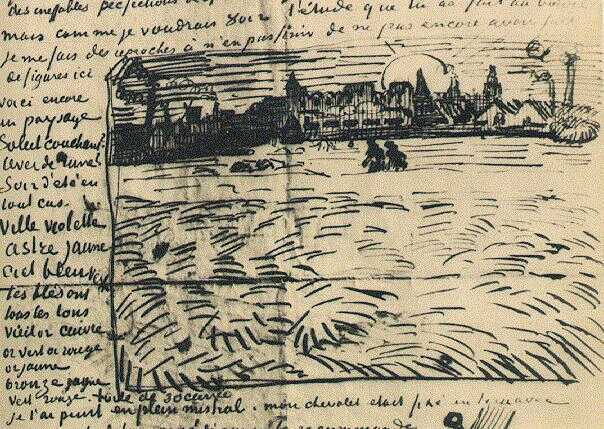 des ineffables perfections de
mais comme je voudrais voir l'étude que tu as fait au
je me fais des reproches à n'en pas finir de ne pas encore avoir fait
de figures ici
voici encore
un paysage
Soleil couchant?
Lever de lune?
Soir d'été en
tout cas.
Ville violette
astre jaune
ciel bleu vert
les blés ont
tous les tons
vieil or cuivre
or vert or rouge
or jaune
bronze jaune
vert rouge. toile de 30 carrée
je l'ai peint en plein mistral. mon chevalet était fixé en terre avec